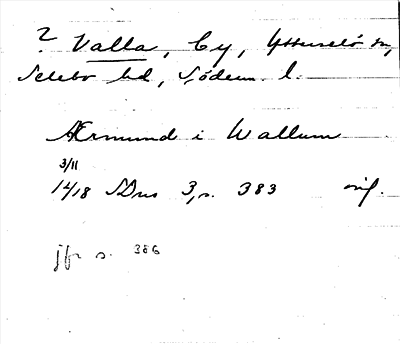 ? Valla, by, Ytterselö sn,
Selebo hd, Söderm. l.
Ærmund i Wallum
3/11
1418 SDns 3, s. 383 orig.
jfr s. 386